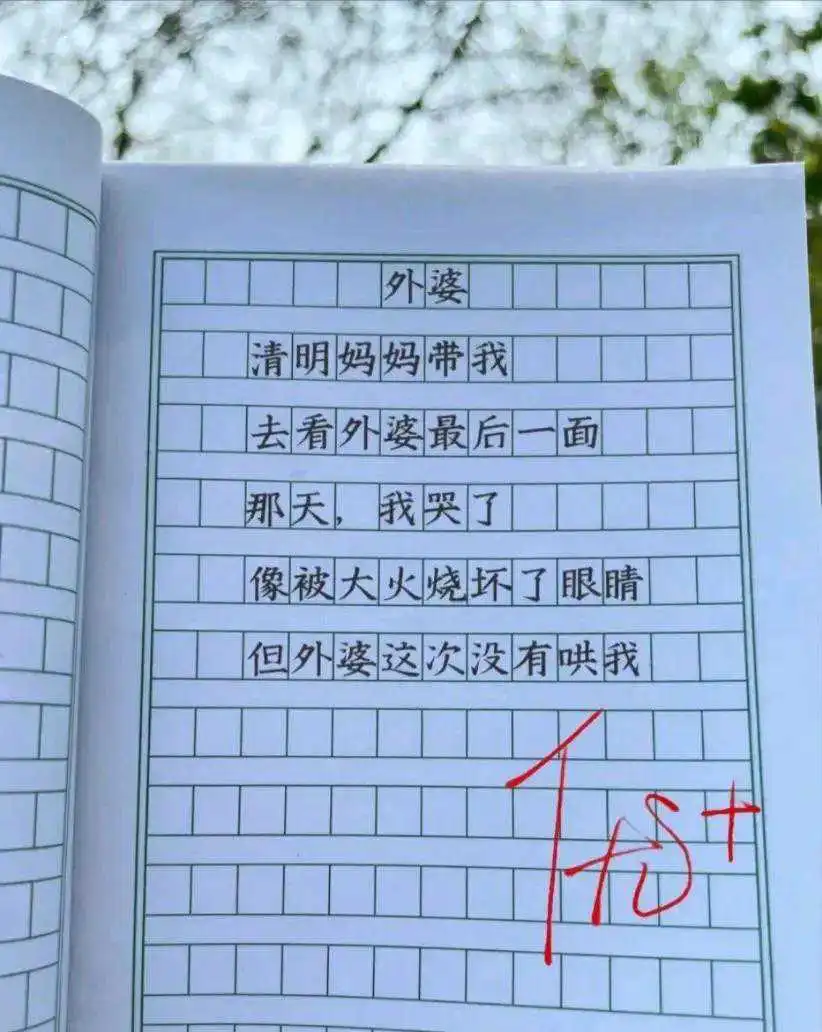 外婆
清明妈妈带我
去看外婆最后一面
那天，我哭了
像被大火烧坏了眼睛
但外婆这次没有哄我
优+